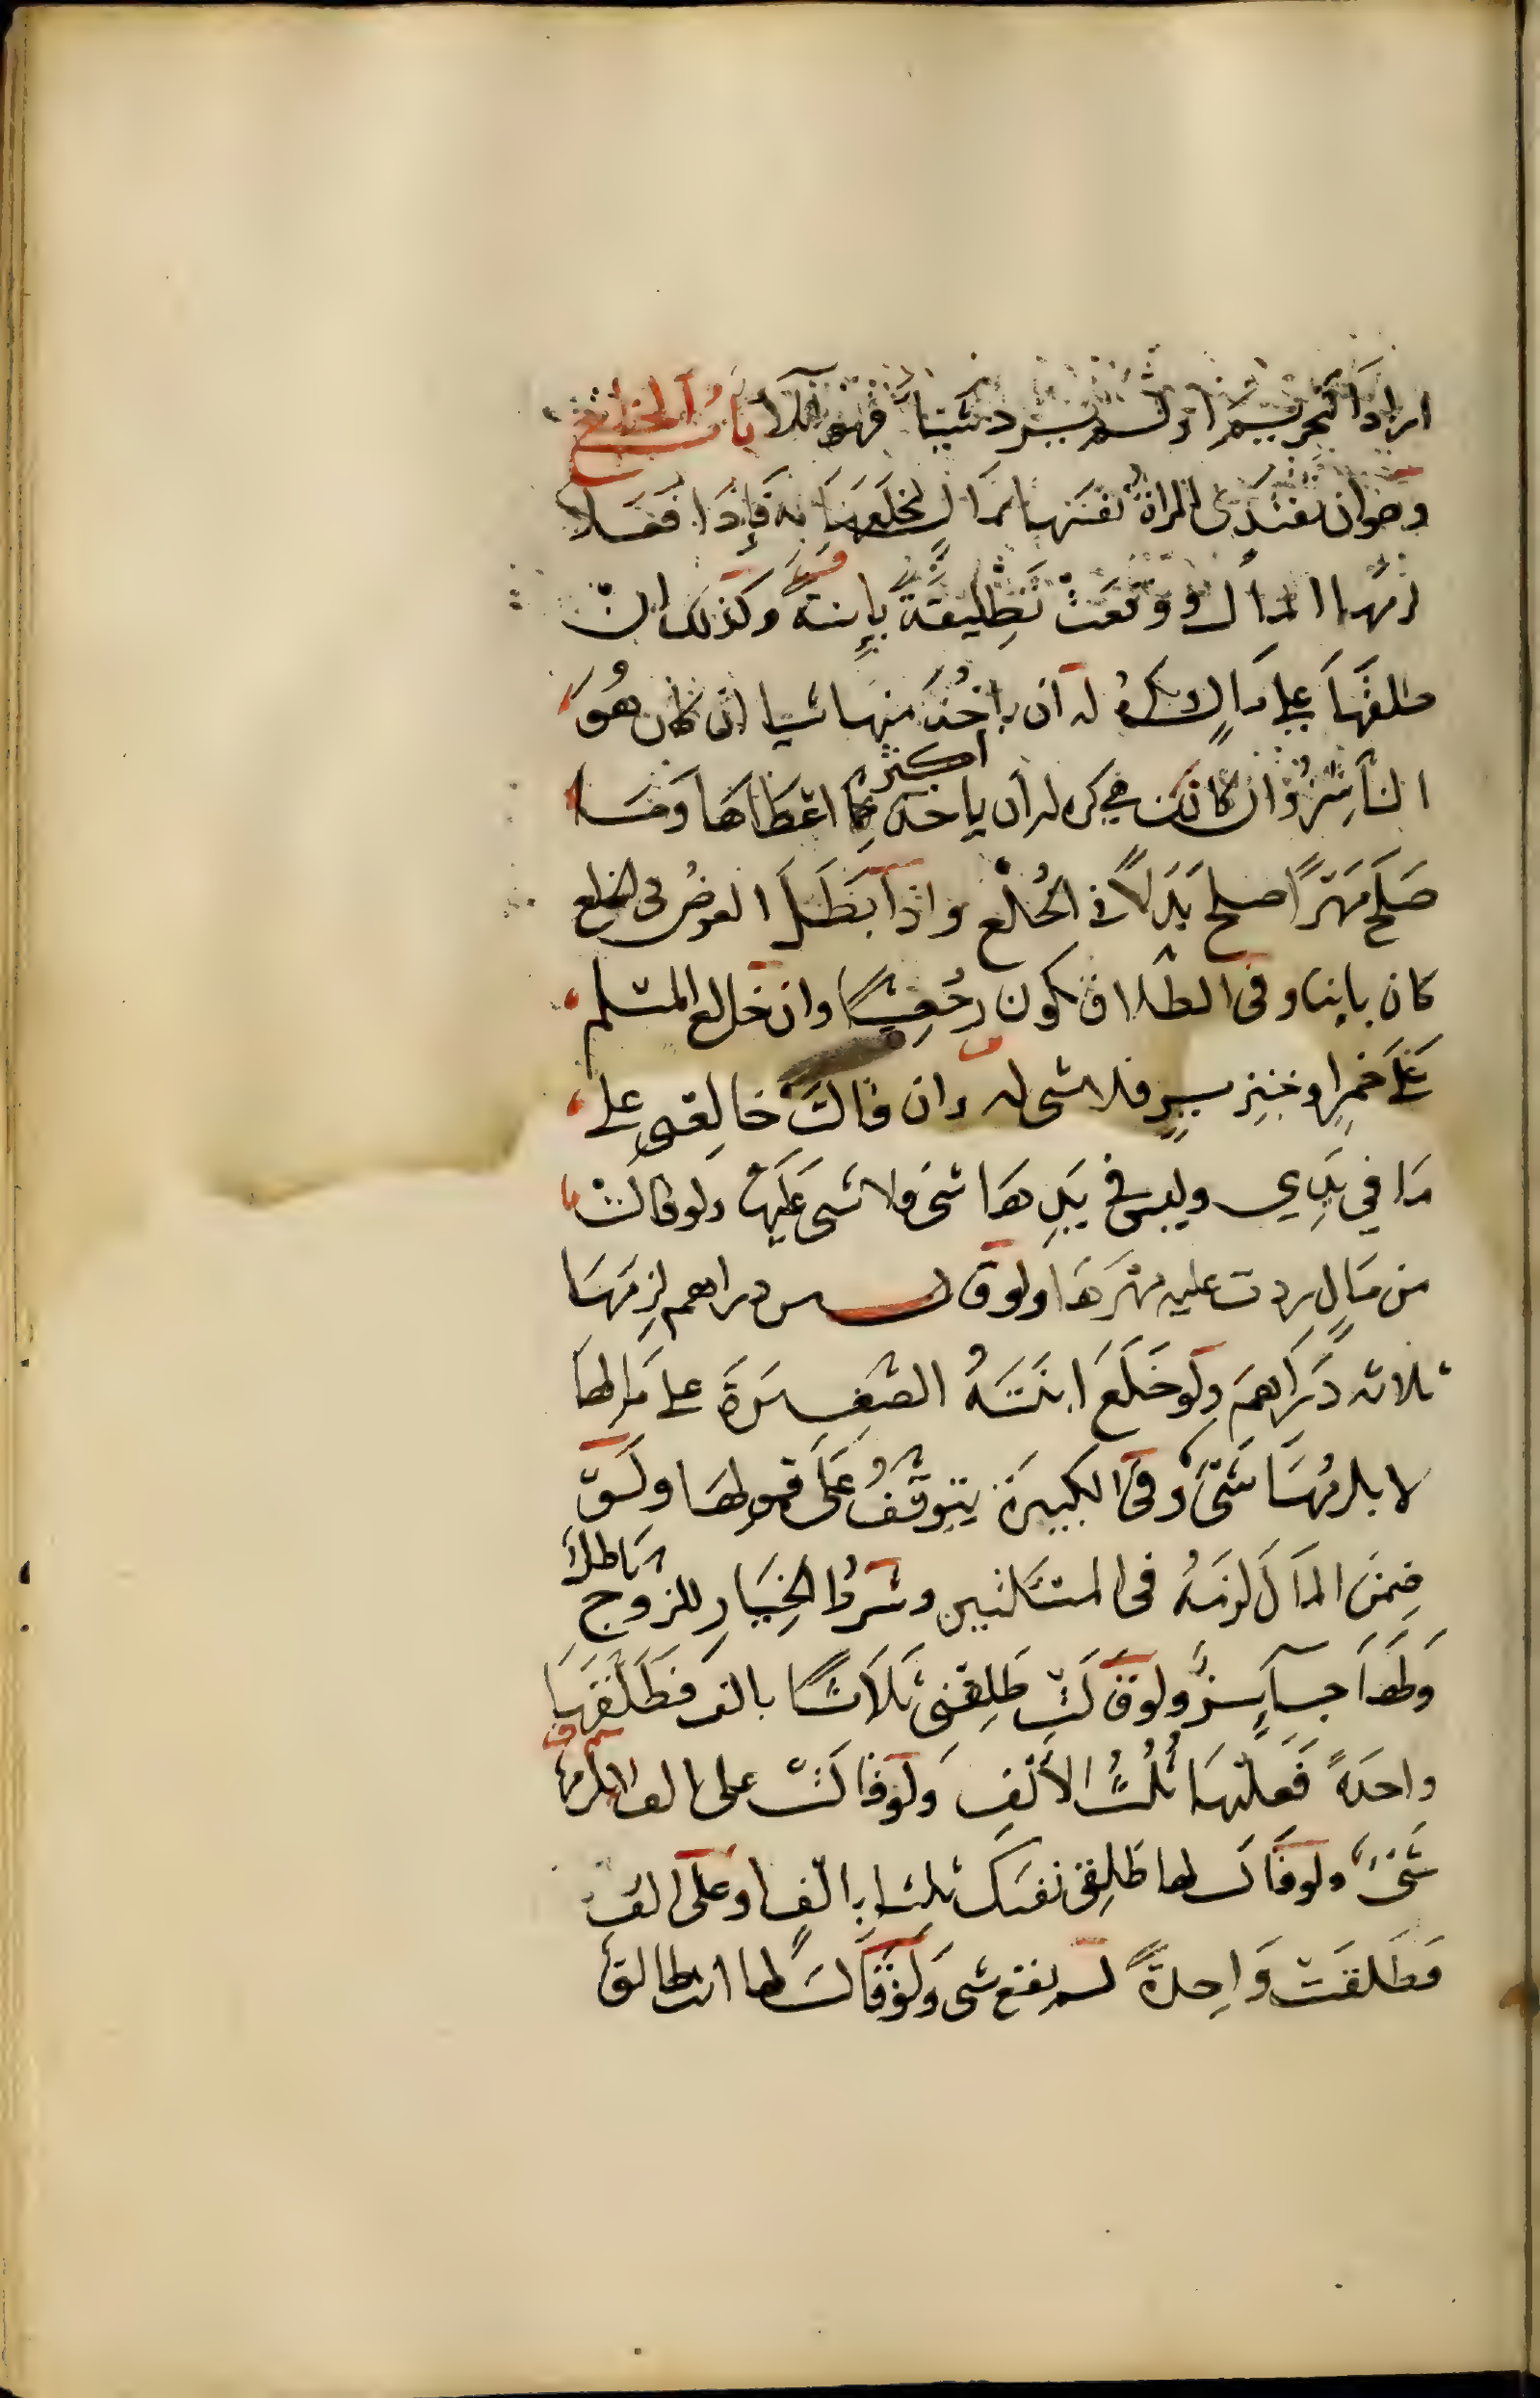 اراد التَحريمَ او لم يرد شَيئاً فهو ايلآ بابُ الخلع
وهو ان تفتدى المراة نفسَها بمَالٍ ليخلَعهَا به فَإذَا فعَلا
لزمهَا المالُ ووقعَتْ تَطِليقةٌ باينةٌ وكذلك ان
طلقَهَا على مَالٍ ويكرهُ له ان ياخُذ منها شيا ان كان هُوَ
النَاشِزُ وان كانت هي كره له ان ياخذ اكثر مِمّا اعْطَاهَا وَمَا
صَلحَ مَهرًا صلح بَدَلاً في الخُلْع واذا بَطَلَ العوضُ فى الخلع
كان باينا وفى الطلاق يكون رجْعيًا وان خالع المسلم
عَلَى خمرٍ او خنزيرٍ فلا شى له وان قالتْ خالِعنى على
مَا في يَدِي وليس في يَدِهَا شىٌ فلا شى عَلَيهَا ولو قالتْ
من مَالٍ ردت عليه مَهْرَهَا ولو قالت من دراهم لزِمَهَا
ثلاثه دَرَاهمَ ولَو خَلَعَ ابنَتهُ الصَغِيرَةَ على مَالها
لا يلزمُهَا شَىْءٌ وفى الكبيرَة يتوقّفُ عَلَى قبولهَا ولَو
ضمِنَ المَالَ لزمَهُ فى المسئلتين وشرطُ الخِيَارِ للزوجِ بَاطلٌ
وَلَهَا جَايزٌ ولو قَالَتْ طَلِقنِى ثَلاثًا بالف فطَلّقَهَا
واحدَةً فَعلَيهَا ثُلُثُ الالْفِ وَلَو قالَتْ على الف لم يلزمها
شَىْءٌ ولو قَال لها طَلِقى نفسَك ثلثا بِالفٍ او على الفٍ
فطَلّقَتْ وَاحِدةً لم يقع شى وَلَوْ قَالَ لها انت طالقٌ